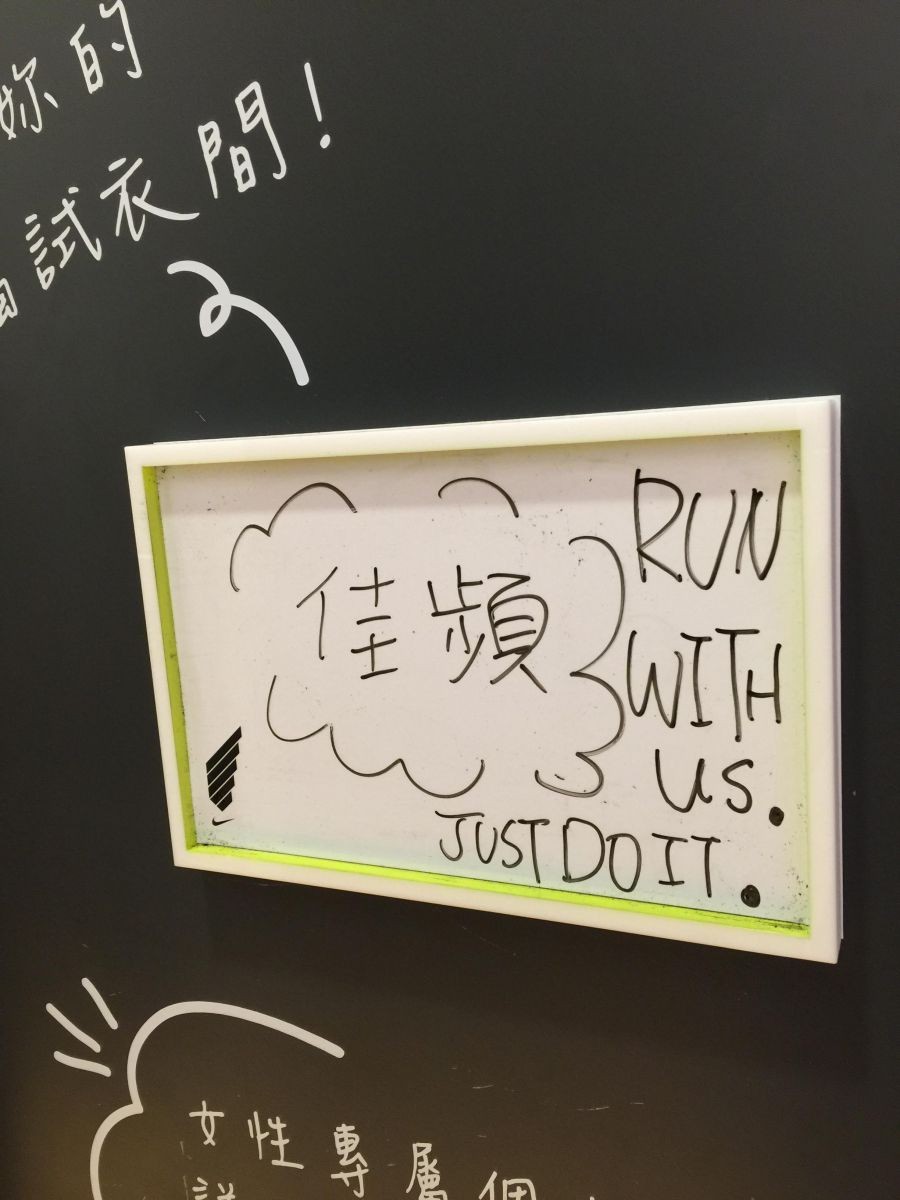 妳的
試衣間!
佳頻
RUN
WITH
us.
JUST DO IT.
女性專屬個